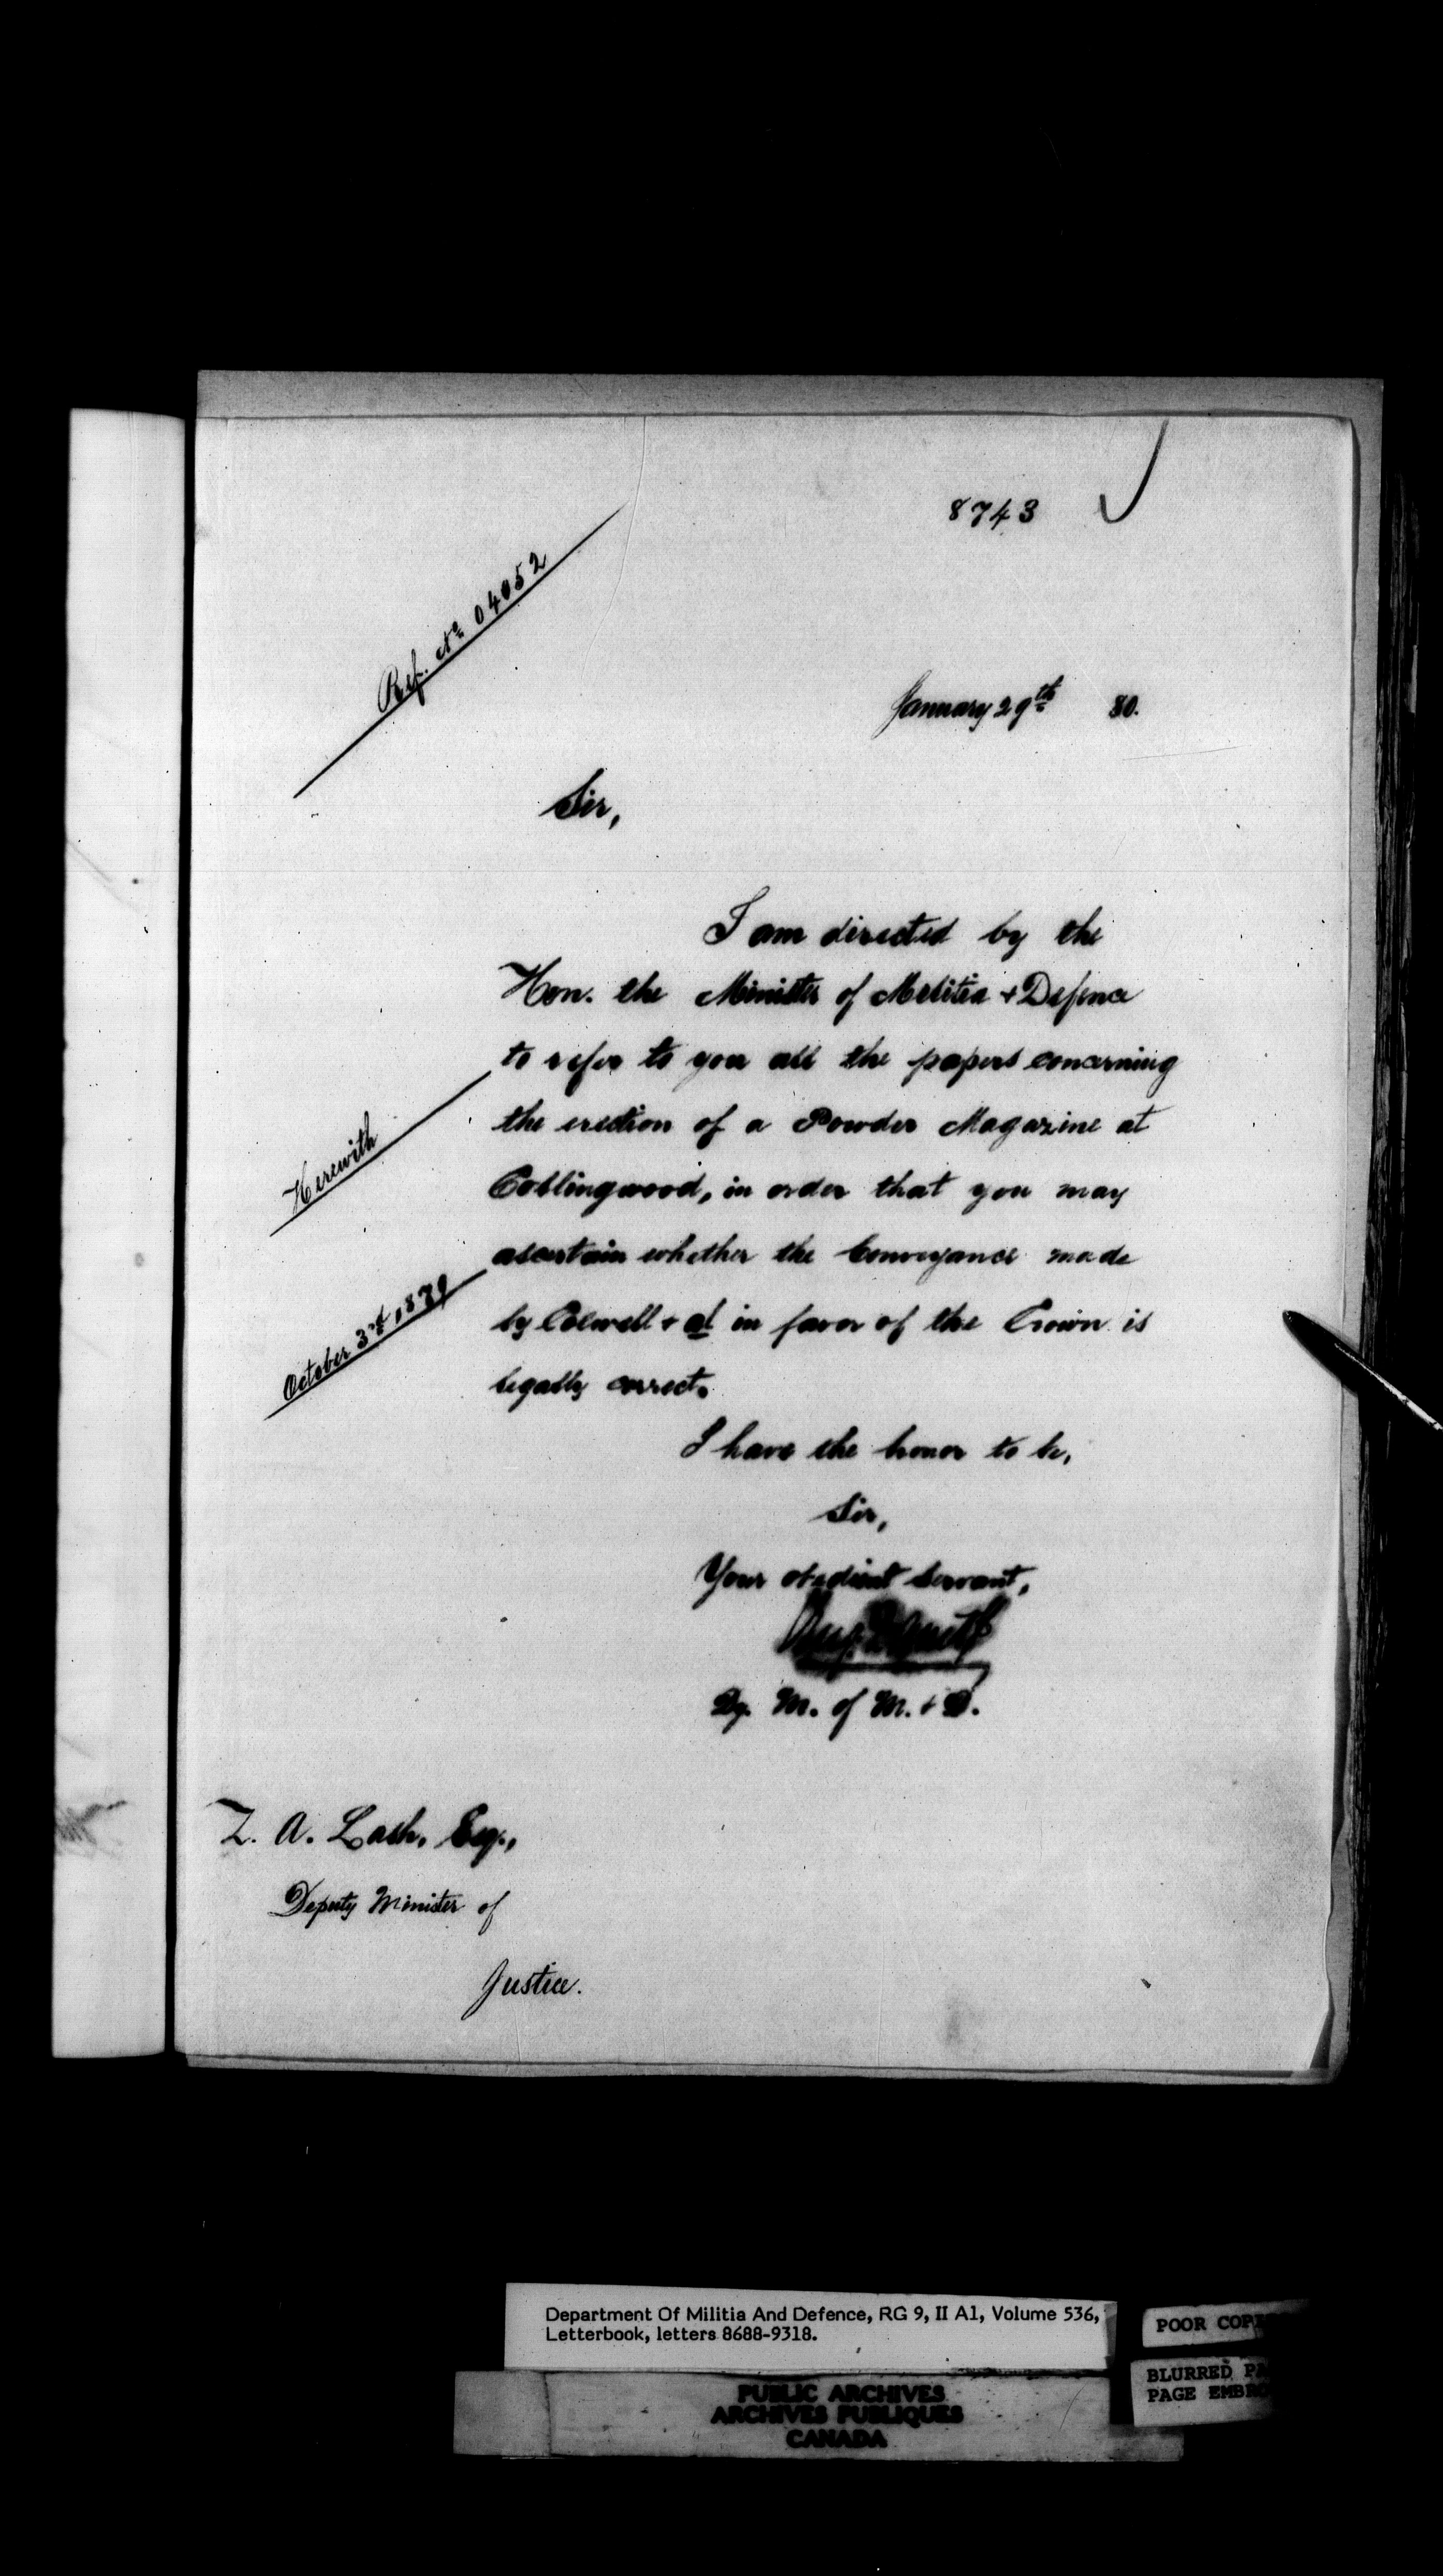 8743
Ref. No 04052
January 29th 80.
Sir,
I am directed by the
Hon. the Minister of Militia + Defence
to refer to you all the papers concerning
Herewith
the erection of a Powder Magazine at
Collingwood, in order that you may
ascertain whether the Conveyance made
October 3rd, 1879
by Colwell + al in favor of the Crown is
legally correct.
I have the honor to be,
Sir,
Your obedient Servant,
Dy. M. of M. + D.
Z. A. Lash, Esq.,
Deputy Minister of
Justice.
Department Of Militia And Defence, RG 9, II A1, Volume 536,
Letterbook, letters 8688-9318.
POOR COP
BLURRED PA
PAGE EMBRO
PUBLIC ARCHIVES
ARCHIVES PUBLIQUES
CANADA